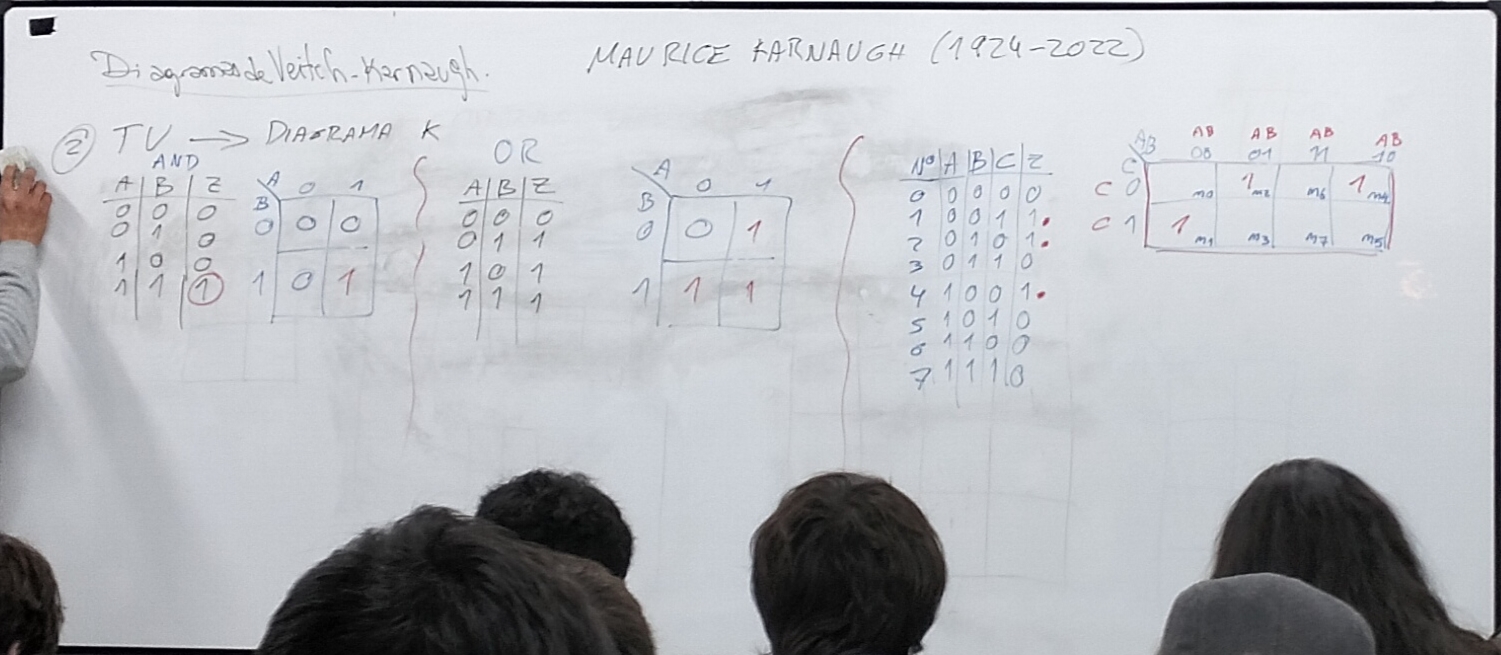 Diagramas de Veitch-Karnaugh.
MAURICE KARNAUGH (1924-2022)
② TV → DIAGRAMA K
AND
A | B | Z
0 0 0
0 1 0
1 0 0
1 1 1
A 0 1
B
0 0 0
1 0 1
OR
A | B | Z
0 0 0
0 1 1
1 0 1
1 1 1
A 0 1
B
0 0 1
1 1 1
Nº | A | B | C | Z
0 0 0 0 0
1 0 0 1 1.
2 0 1 0 1.
3 0 1 1 0
4 1 0 0 1.
5 1 0 1 0
6 1 1 0 0
7 1 1 1 0
AB AB AB AB
AB 00 01 11 10
C
C 0 m0 1 m2 m6 1 m4
C 1 1 m1 m3 m7 m5